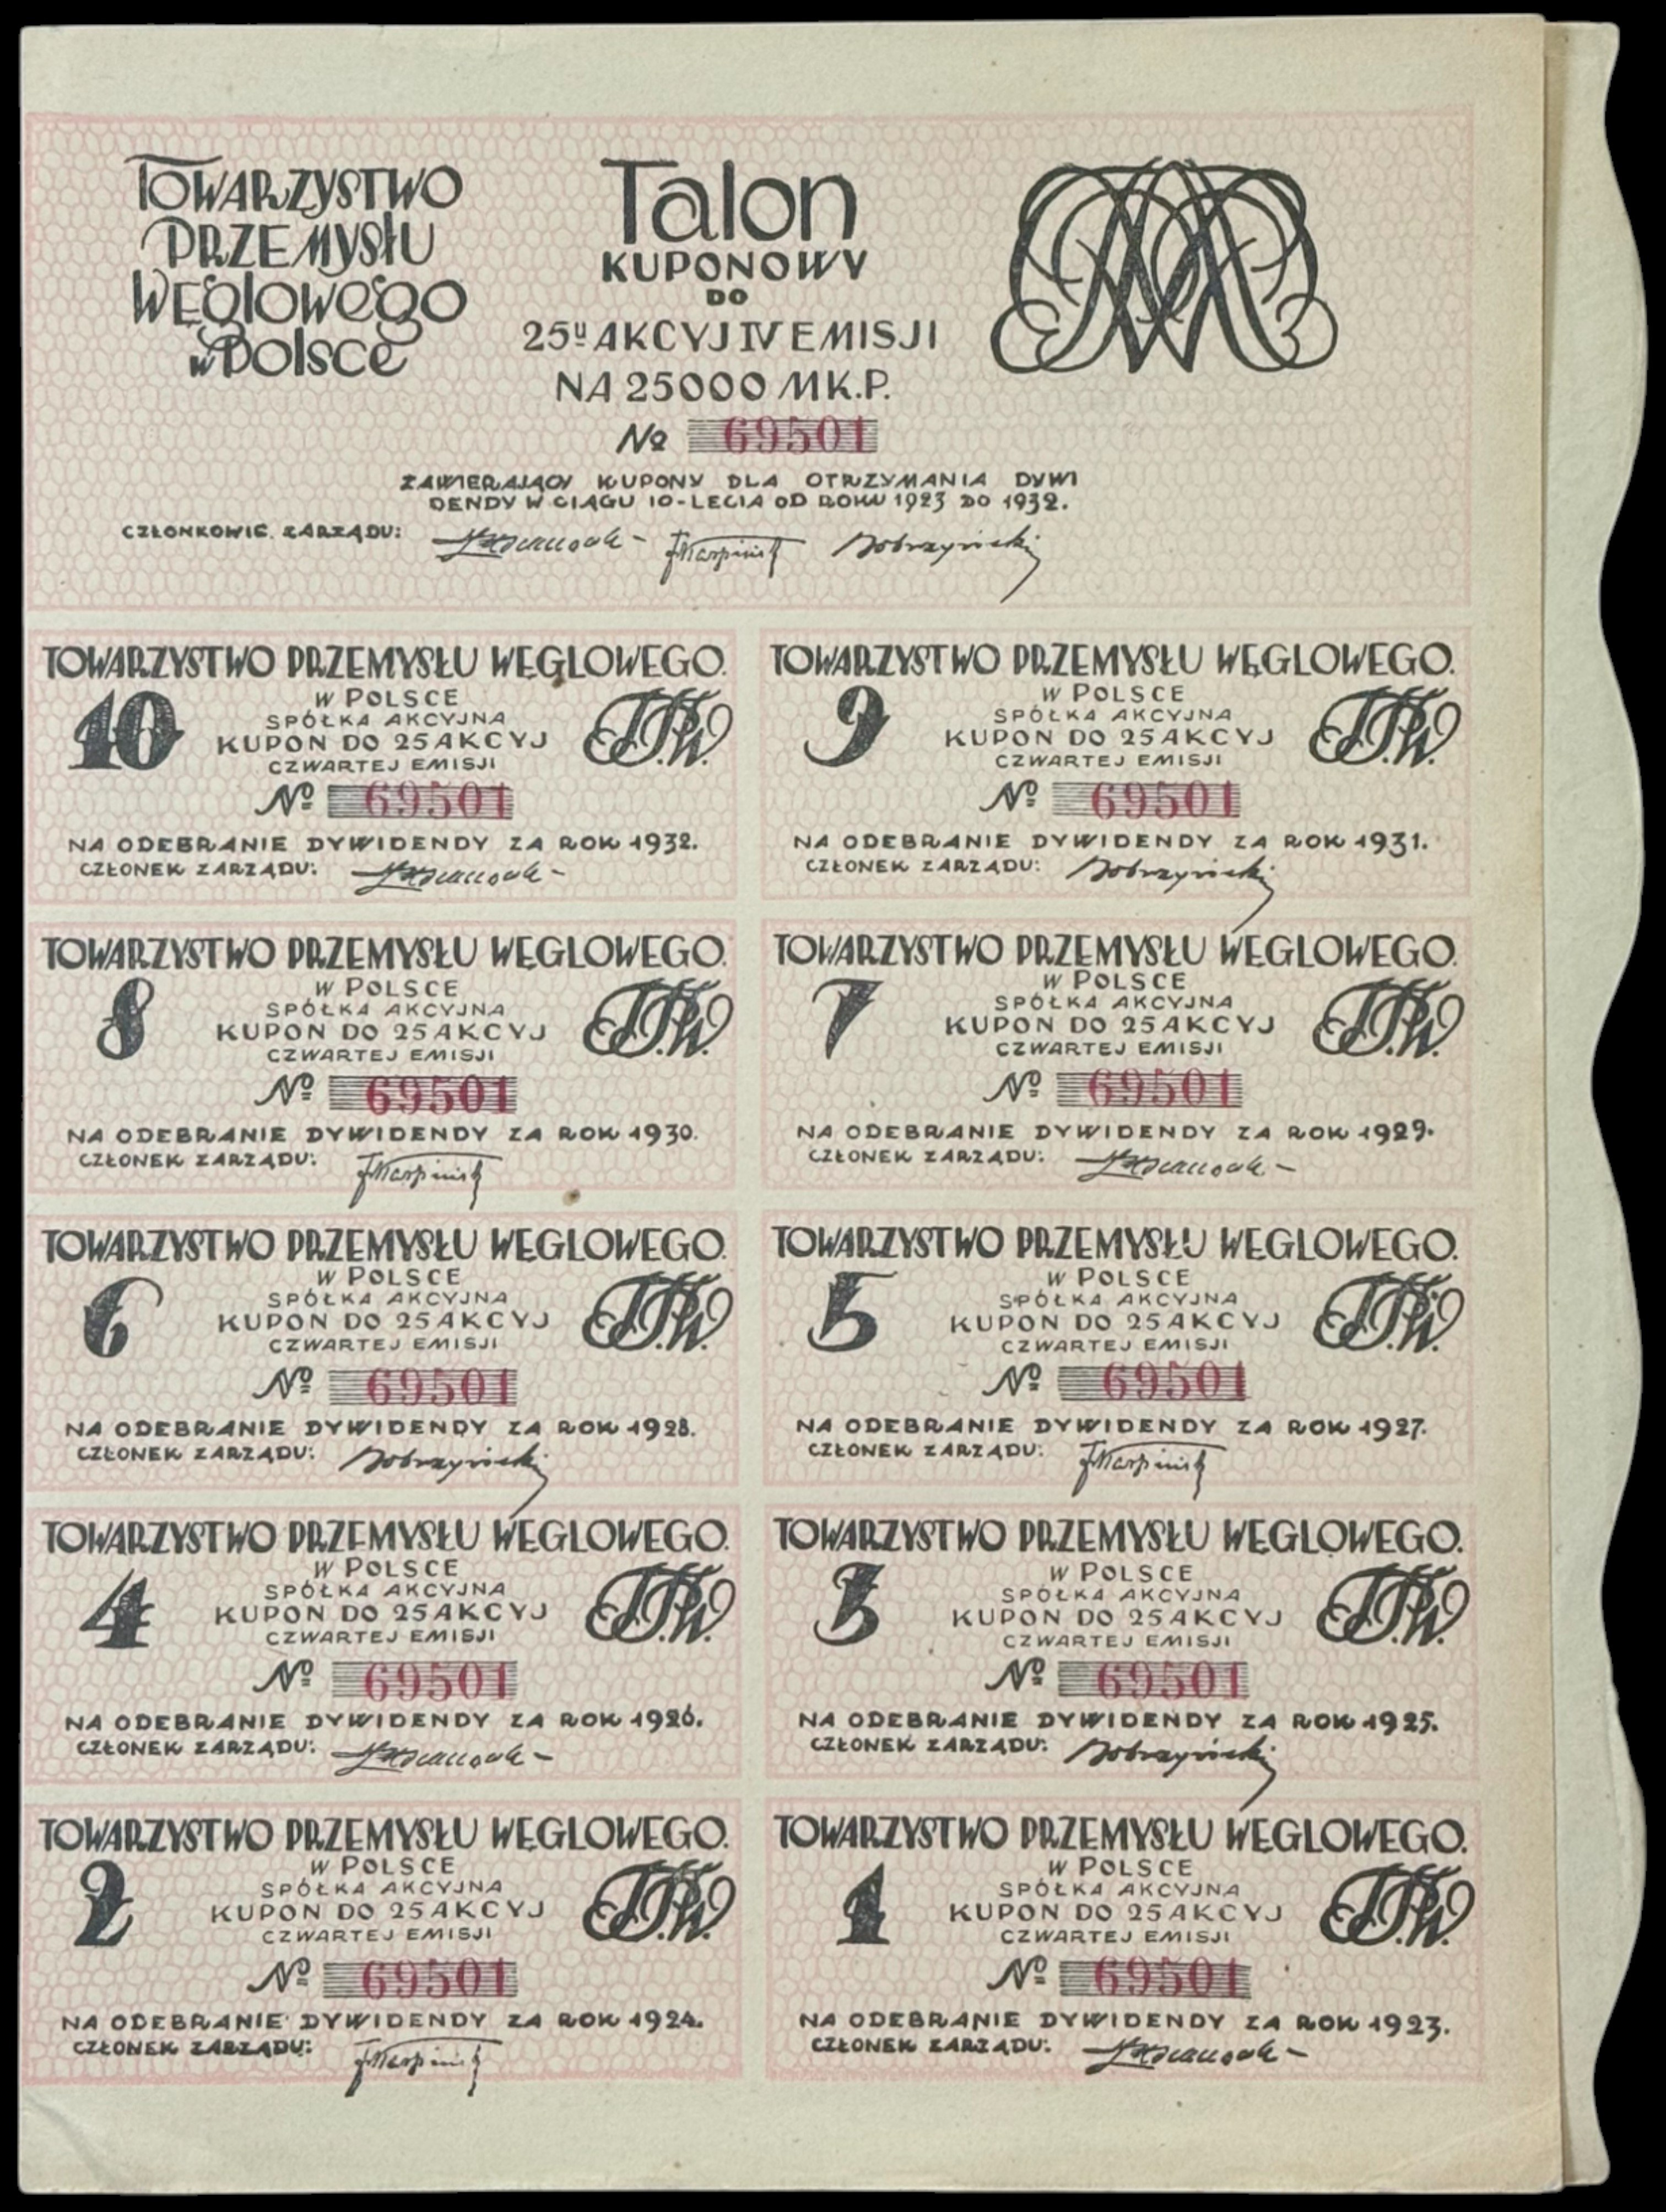 TOWARZYSTWO
PRZEMYSŁU
WĘGLOWEGO
W POLSCE
Talon
KUPONOWY
DO
25U AKCYJ IV EMISJI
NA 25000 MK.P.
No 69501
ZAWIERAJĄCY KUPONY DLA OTRZYMANIA DYWI
DENDY W CIĄGU 10-LECIA OD ROKU 1923 DO 1932.
CZŁONKOWIE ZARZĄDU:
TOWARZYSTWO PRZEMYSŁU WĘGLOWEGO.
10
W POLSCE
SPÓŁKA AKCYJNA
KUPON DO 25 AKCYJ
CZWARTEJ EMISJI
T.P.W.
No 69501
NA ODEBRANIE DYWIDENDY ZA ROK 1932.
CZŁONEK ZARZĄDU:
TOWARZYSTWO PRZEMYSŁU WĘGLOWEGO.
9
W POLSCE
SPÓŁKA AKCYJNA
KUPON DO 25 AKCYJ
CZWARTEJ EMISJI
T.P.W.
No 69501
NA ODEBRANIE DYWIDENDY ZA ROK 1931.
CZŁONEK ZARZĄDU: Dobrzyński
TOWARZYSTWO PRZEMYSŁU WĘGLOWEGO.
8
W POLSCE
SPÓŁKA AKCYJNA
KUPON DO 25 AKCYJ
CZWARTEJ EMISJI
T.P.W.
No 69501
NA ODEBRANIE DYWIDENDY ZA ROK 1930.
CZŁONEK ZARZĄDU:
TOWARZYSTWO PRZEMYSŁU WĘGLOWEGO.
7
W POLSCE
SPÓŁKA AKCYJNA
KUPON DO 25 AKCYJ
CZWARTEJ EMISJI
T.P.W.
No 69501
NA ODEBRANIE DYWIDENDY ZA ROK 1929.
CZŁONEK ZARZĄDU:
TOWARZYSTWO PRZEMYSŁU WĘGLOWEGO.
6
W POLSCE
SPÓŁKA AKCYJNA
KUPON DO 25 AKCYJ
CZWARTEJ EMISJI
T.P.W.
No 69501
NA ODEBRANIE DYWIDENDY ZA ROK 1928.
CZŁONEK ZARZĄDU: Dobrzyński
TOWARZYSTWO PRZEMYSŁU WĘGLOWEGO.
5
W POLSCE
SPÓŁKA AKCYJNA
KUPON DO 25 AKCYJ
CZWARTEJ EMISJI
T.P.W.
No 69501
NA ODEBRANIE DYWIDENDY ZA ROK 1927.
CZŁONEK ZARZĄDU:
TOWARZYSTWO PRZEMYSŁU WĘGLOWEGO.
4
W POLSCE
SPÓŁKA AKCYJNA
KUPON DO 25 AKCYJ
CZWARTEJ EMISJI
T.P.W.
No 69501
NA ODEBRANIE DYWIDENDY ZA ROK 1926.
CZŁONEK ZARZĄDU:
TOWARZYSTWO PRZEMYSŁU WĘGLOWEGO.
3
W POLSCE
SPÓŁKA AKCYJNA
KUPON DO 25 AKCYJ
CZWARTEJ EMISJI
T.P.W.
No 69501
NA ODEBRANIE DYWIDENDY ZA ROK 1925.
CZŁONEK ZARZĄDU: Dobrzyński
TOWARZYSTWO PRZEMYSŁU WĘGLOWEGO.
2
W POLSCE
SPÓŁKA AKCYJNA
KUPON DO 25 AKCYJ
CZWARTEJ EMISJI
T.P.W.
No 69501
NA ODEBRANIE DYWIDENDY ZA ROK 1924.
CZŁONEK ZARZĄDU:
TOWARZYSTWO PRZEMYSŁU WĘGLOWEGO.
1
W POLSCE
SPÓŁKA AKCYJNA
KUPON DO 25 AKCYJ
CZWARTEJ EMISJI
T.P.W.
No 69501
NA ODEBRANIE DYWIDENDY ZA ROK 1923.
CZŁONEK ZARZĄDU: